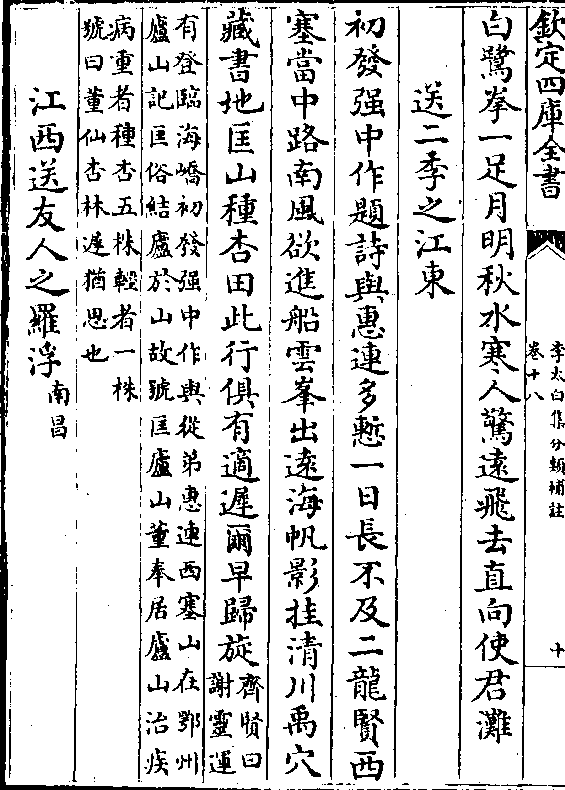 欽定四庫全書
李太白集分類補註
卷十八
十
白鷺拳一足月明秋水寒人驚遠飛去直向使君灘
送二季之江東
初發强中作題詩與惠連多慙一日長不及二龍賢西
塞當中路南風欲進船雲峯出遠海帆影挂清川禹穴
藏書地匡山種杏田此行俱有適遲爾早歸旋
齊賢曰
謝靈運
有登臨海嶠初發强中作與從弟惠連西塞山在鄂州
廬山記匡俗結廬於山故號匡廬山董奉居廬山治疾
病重者種杏五株輕者一株
號曰董仙杏林遲猶思也
江西送友人之羅浮
南昌